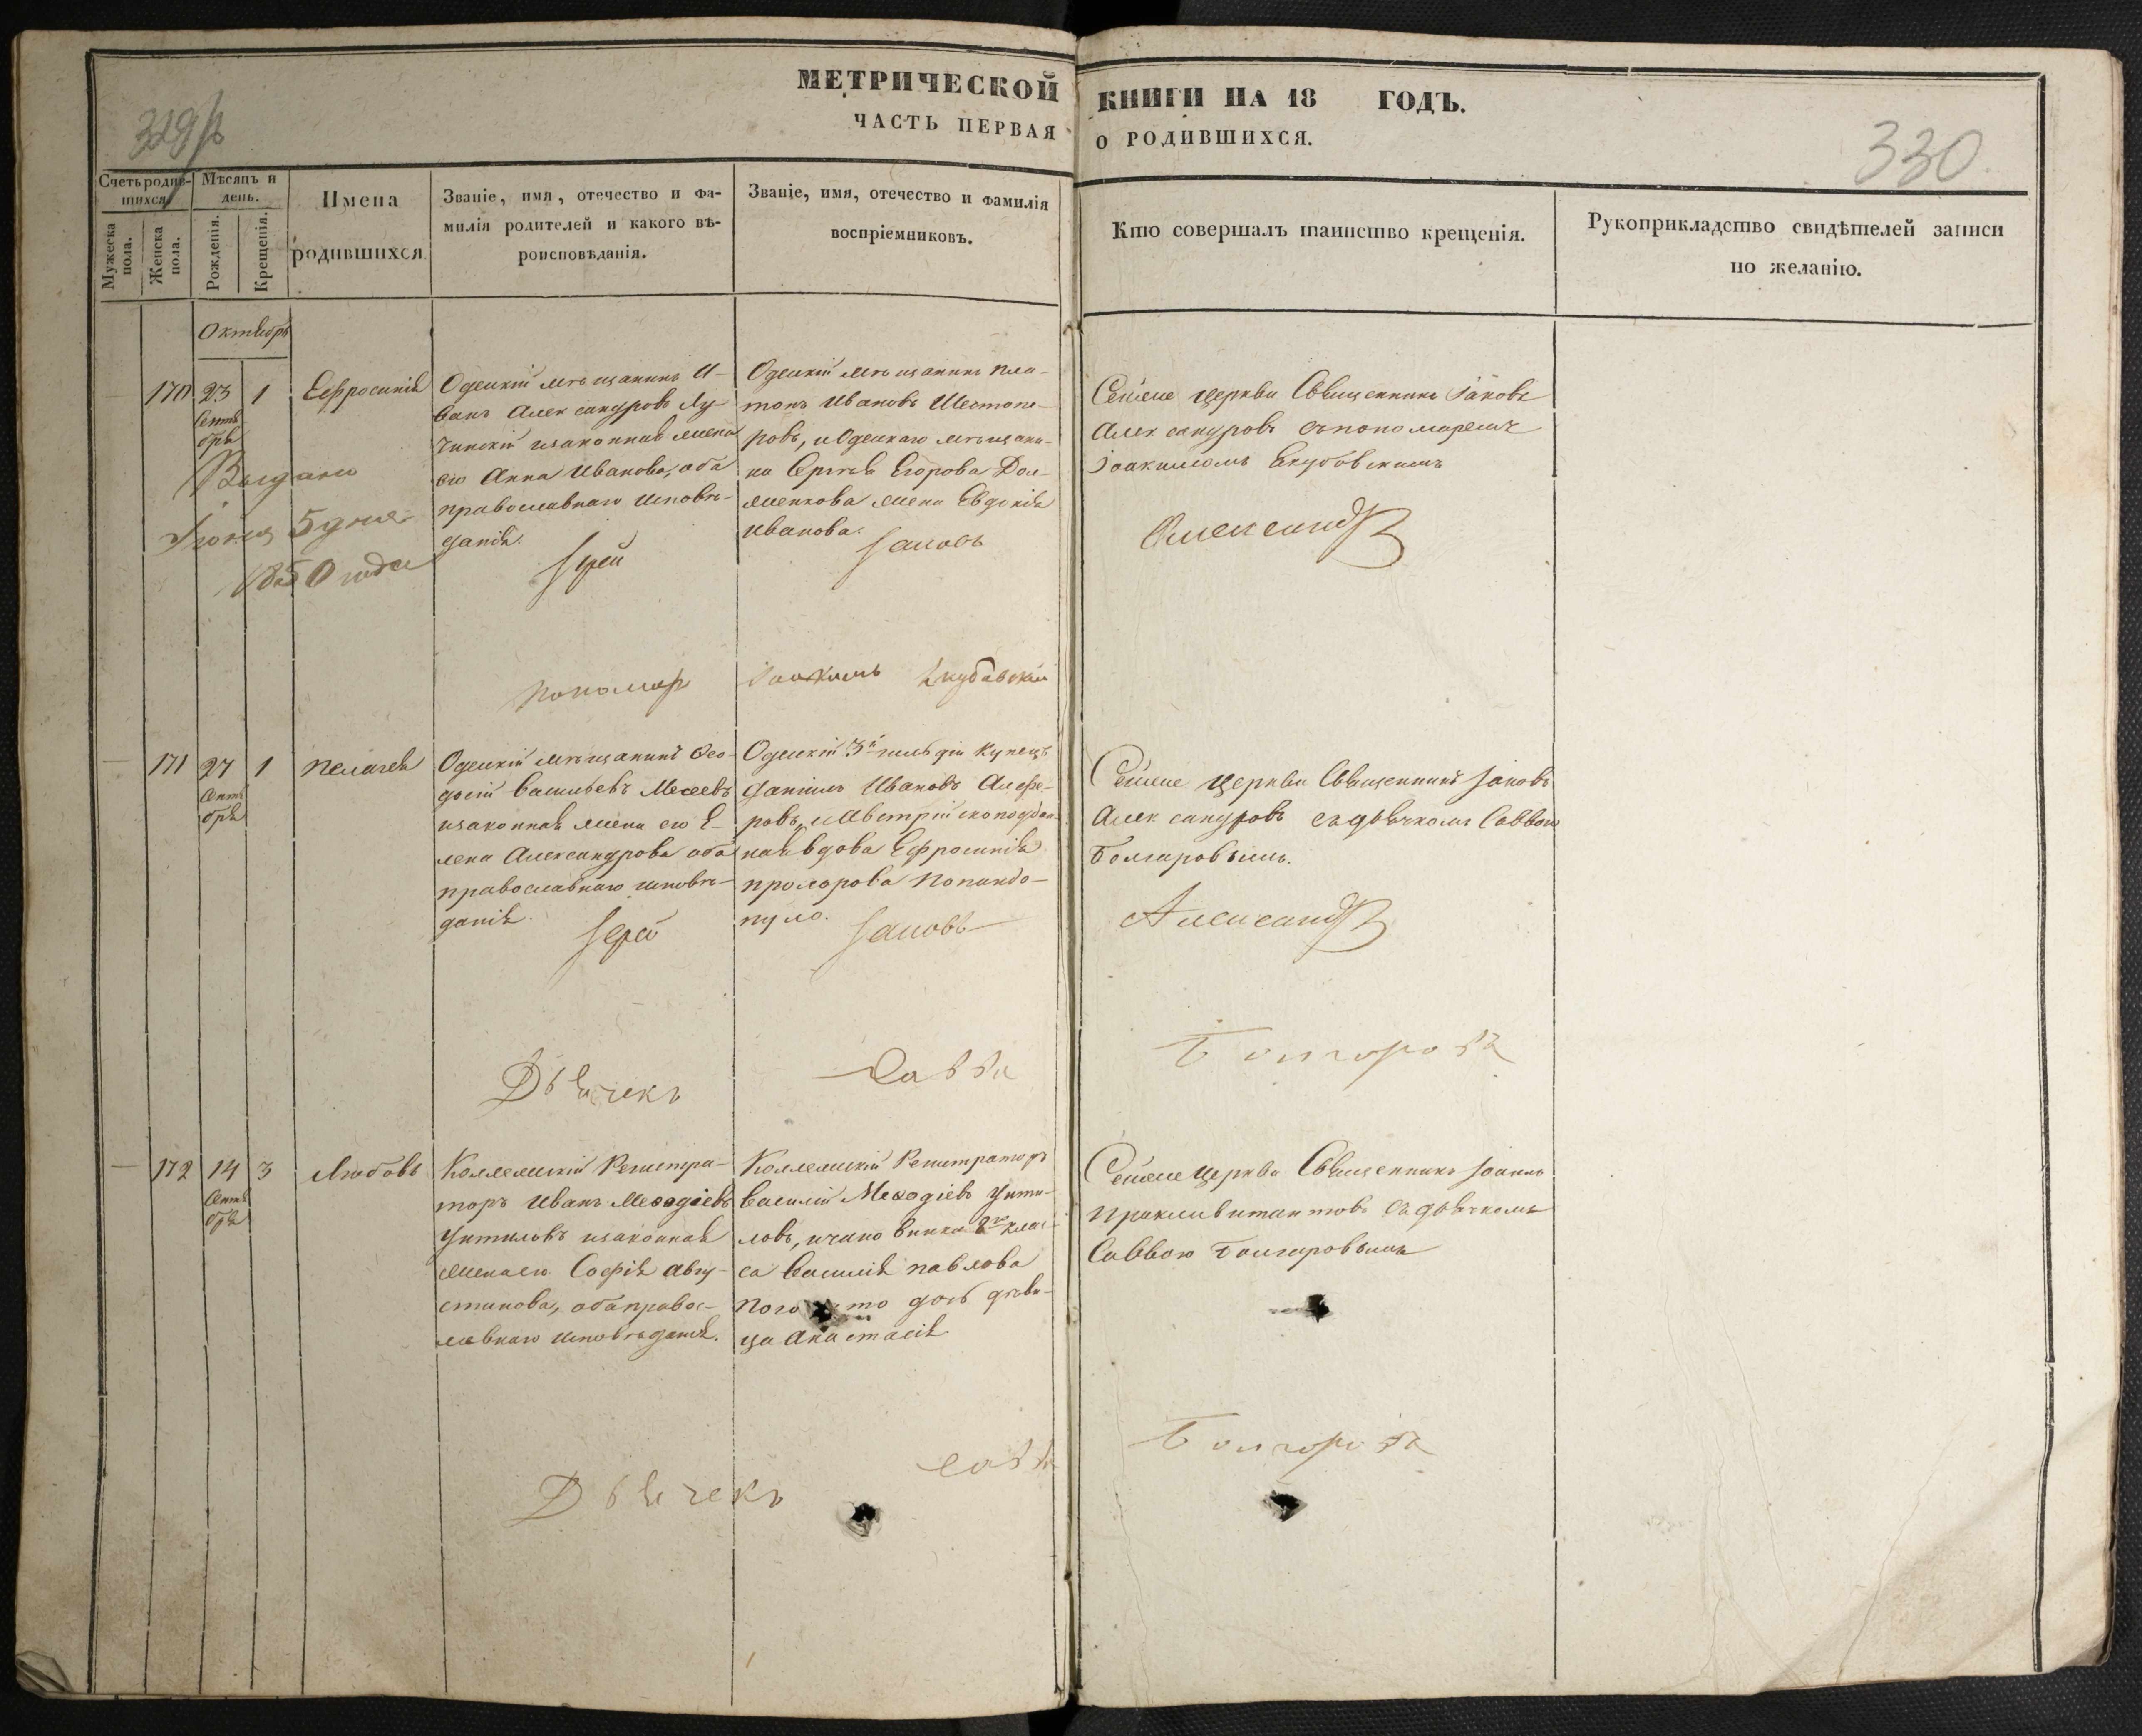 МЕТРИЧЕСКОЙ КНИГИ НА 18 ГОДЪ.
ЧАСТЬ ПЕРВАЯ О РОДИВШИХСЯ.
330
Счетъ родив-
шихся
Мужеска пола.
Женска пола.
Мѣсяцъ и
день.
Рожденія.
Крещенія.
Имена
родившихся
Званіе, имя, отечество и фа-
милія родителей и какого вѣ-
роисповѣданія.
Званіе, имя, отечество и фамилія
воспріемниковъ.
Кто совершалъ таинство крещенія.
Рукоприкладство свидѣтелей записи
по желанію.
Октябрь
170 23 Сентя
бря
1
Ефросинія
Одескій мѣщанинъ И-
ванъ Александровъ Лу-
чинскій изаконная жена
его Анна Иванова, оба
православнаго исповѣ-
данія.
Одескій мѣщанинъ Пла-
тонъ Ивановъ Шестопе-
ровъ, и Одескаго мѣщани-
на Сергѣя Егорова Дол-
женкова жена Евдокія
Иванова.
Сей же церкви Священникъ Іаковъ
Александровъ съ пономаремъ
Іоакимомъ Якубовскимъ
Выдано
Іюня 5 дня
1850 года
Іерей Іаковъ Александровъ
Пономар Іоакимъ Якубовский
171 27 Сентя
бря
1
Пелагея
Одескій мѣщанинъ Фео-
досій Васильевъ Мосеевъ
изаконная жена его Е-
лена Александрова оба
православнаго исповѣ-
данія.
Одескій 3й гильдіи купецъ
Даніилъ Ивановъ Алефе-
ровъ, и Австрійскоподдан-
ная вдова Ефросинія
Прохорова Попандо-
пуло.
Сей же церкви Священникъ Іаковъ
Александровъ съ дьячкомъ Саввою
Болгаровымъ.
Іерей Іаковъ Александровъ
Дьячекъ Савва Болгоровъ
172 14 Сентя
бря
3
Любовь
Коллежскій Регистра-
торъ Иванъ Мефодіевъ
изаконная
жена его Софія Авгу-
стинова, оба правос-
лавнаго исповѣданія.
Коллежскій Регистраторъ
Василій Мефодіевъ
и чиновника 8го клас-
са Василія Павлова
дочь дѣви-
ца Анастасія
Сей же церкви Священникъ Іоаннъ
съ дьячкомъ
Саввою Болгаровымъ
Дьячекъ Савва Болгоровъ